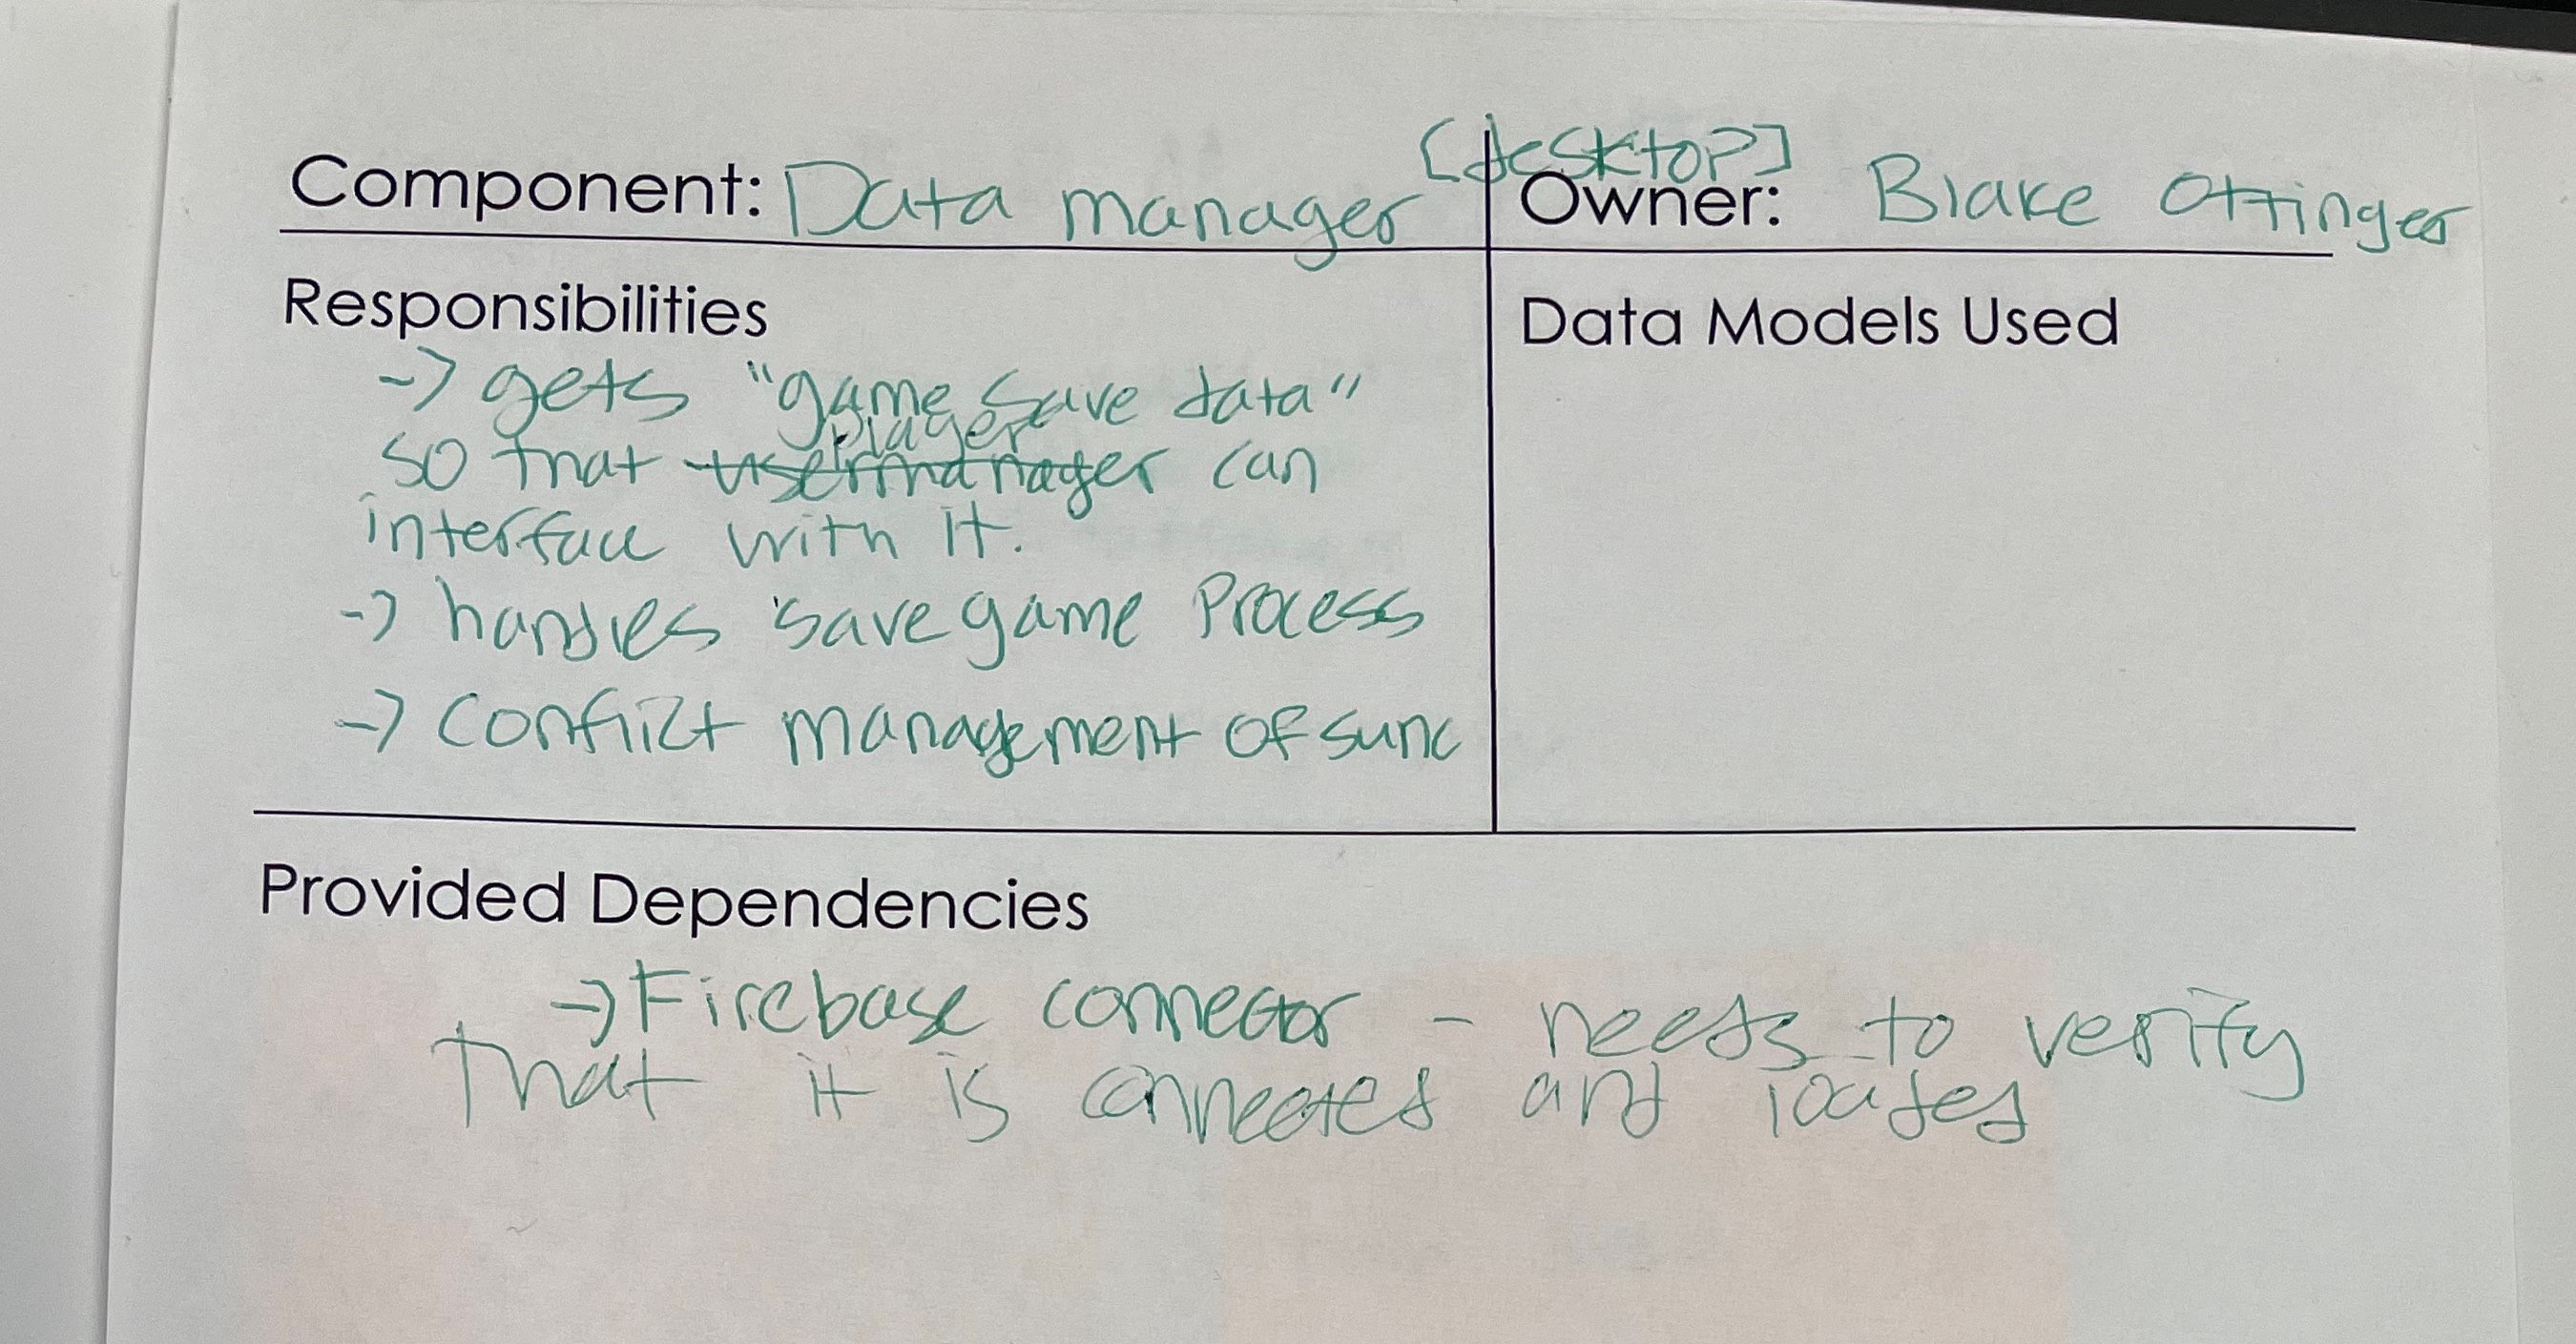 [desktop]
Component: Data manager
Owner: Blake Ottinger
Responsibilities
-> gets "game save data"
player
so that usermanager can
interface with it.
-> handles save game Process
-> conflict management of sync
Data Models Used
Provided Dependencies
-> Firebase connector - needs to verify
That it is connected and loaded